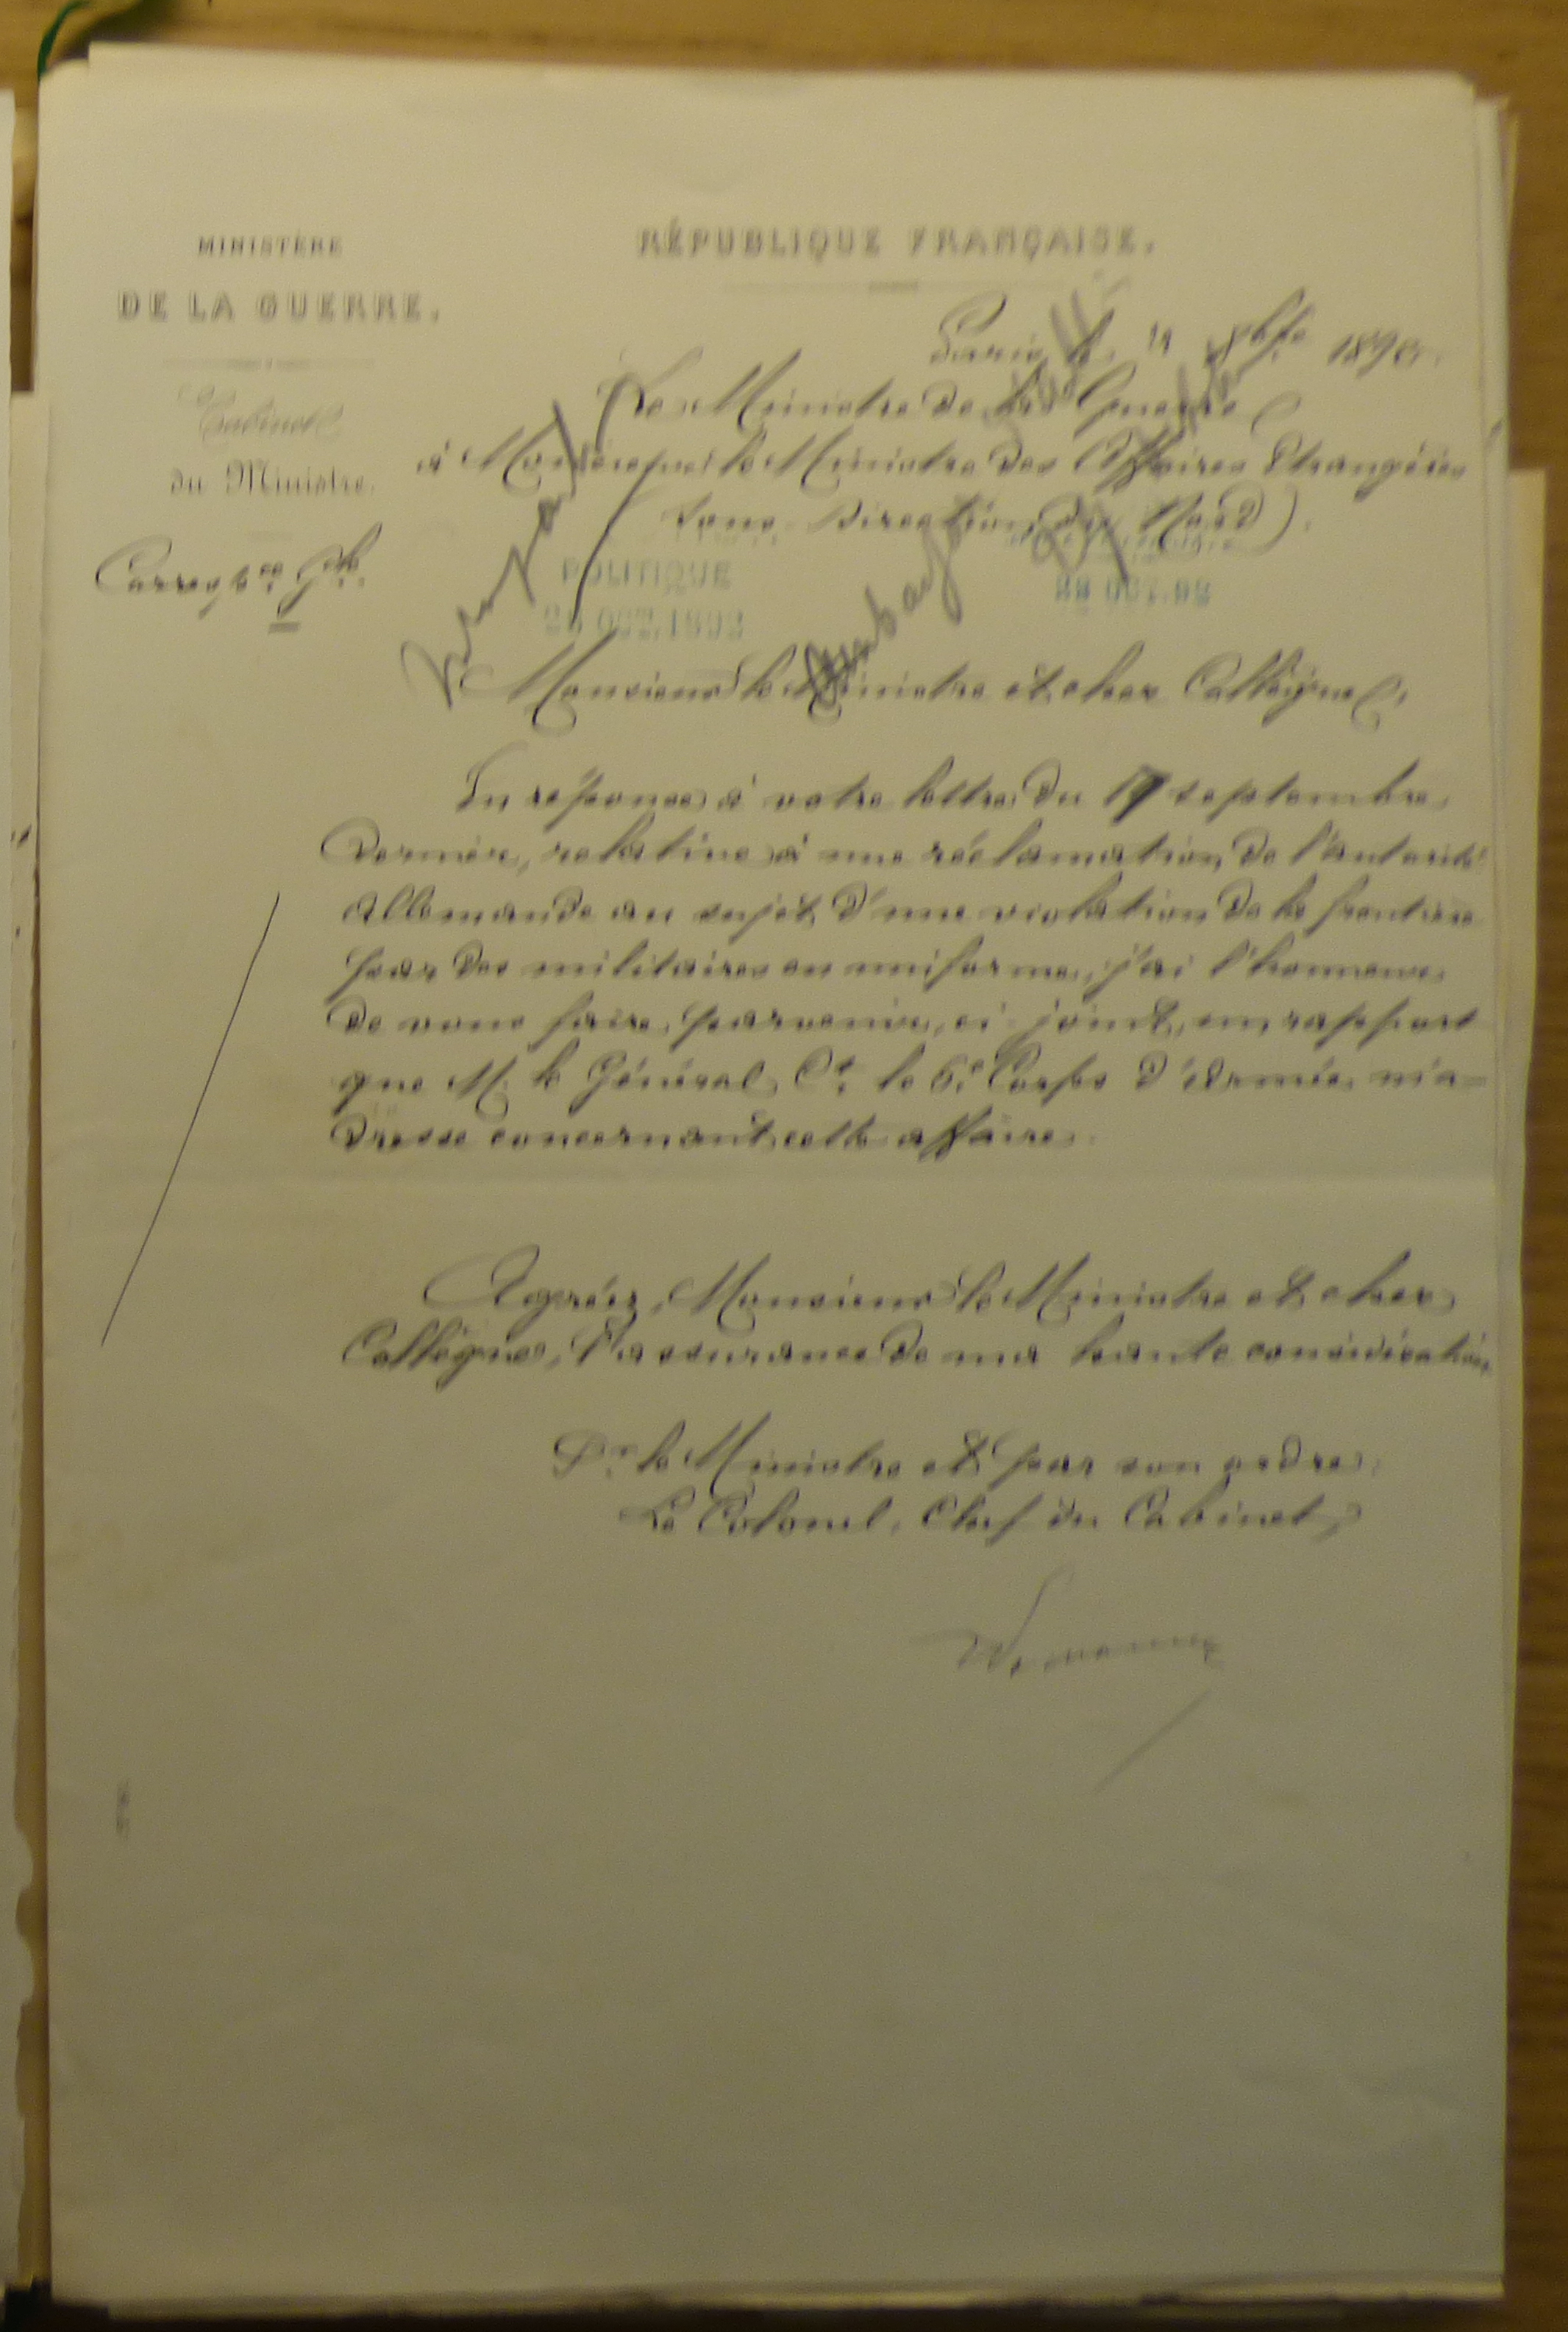 MINISTÈRE
DE LA GUERRE.
Cabinet
du Ministre.
Corresp.ce G.le
RÉPUBLIQUE FRANÇAISE.
Paris, le 8bre 189
Le Ministre de la Guerre
à Monsieur le Ministre des Affaires Étrangères
Direction du Nord).
POLITIQUE
OCT. 1892
OCT. 92
Monsieur le Ministre et cher Collègue,
En réponse à votre lettre du 17 septembre
dernier, relative à une réclamation de l'autorité
Allemande au sujet d'une violation de la frontière
par des militaires en uniforme, j'ai l'honneur
de vous faire parvenir, ci-joint, un rapport
que M. le Général Ct. le 6e. Corps d'Armée m'a-
dresse concernant cette affaire.
Agréez, Monsieur le Ministre et cher
Collègue, l'assurance de ma haute considération.
Pr. le Ministre et par son ordre,
Le Colonel, Chef du Cabinet,